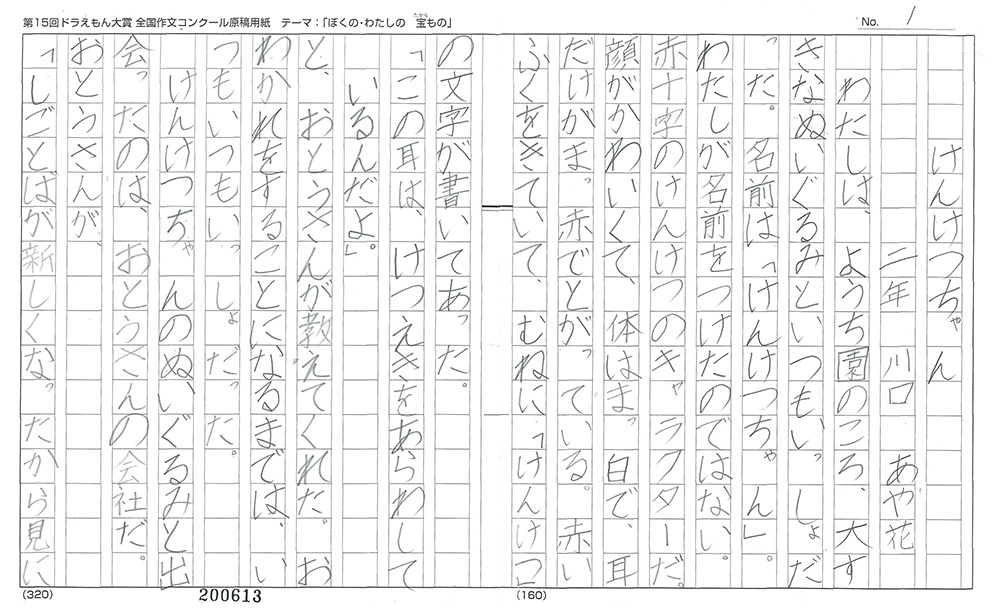 第15回ドラえもん大賞 全国作文コンクール原稿用紙　テーマ：「ぼくの・わたしの　宝もの」
たから
No. 1
けんけつちゃん
二年　川口　あや花
わたしは、ようち園のころ、大す
きなぬいぐるみといつもいっしょだ
った。名前は「けんけつちゃん」。
わたしが名前をつけたのではない。
赤十字のけんけつのキャラクターだ。
顔がかわいくて、体はまっ白で、耳
だけがまっ赤でとがっている。赤い
ふくをきていて、むねに「けんけつ」
の文字が書いてあった。
「この耳は、けつえきをあらわして
いるんだよ。」
と、おとうさんが教えてくれた。お
わかれをすることになるまでは、い
つもいつもいっしょだった。
けんけつちゃんのぬいぐるみと出
会ったのは、おとうさんの会社だ。
おとうさんが、
「しごとばが新しくなったから見に
(320)
200613
(160)